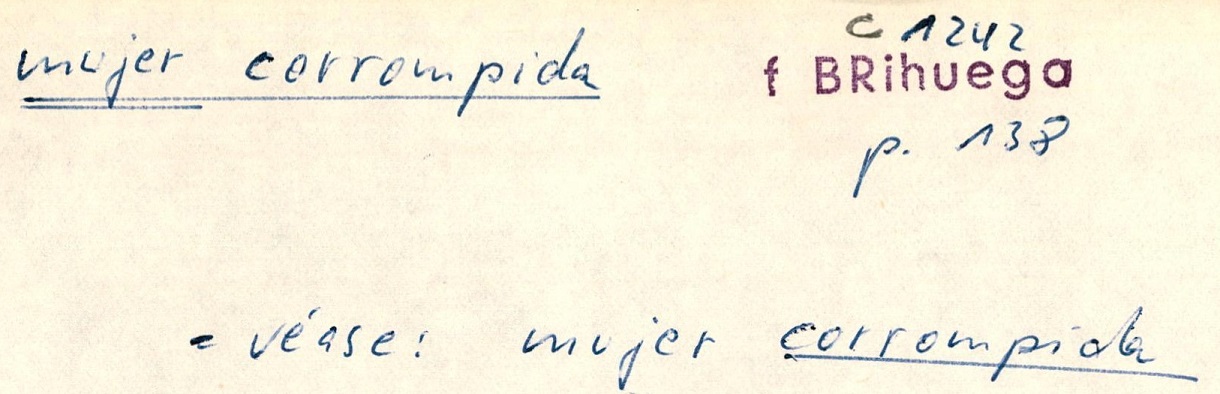 mujer corrompida
c 1242
f BRihuega
p. 138
= véase: mujer corrompida